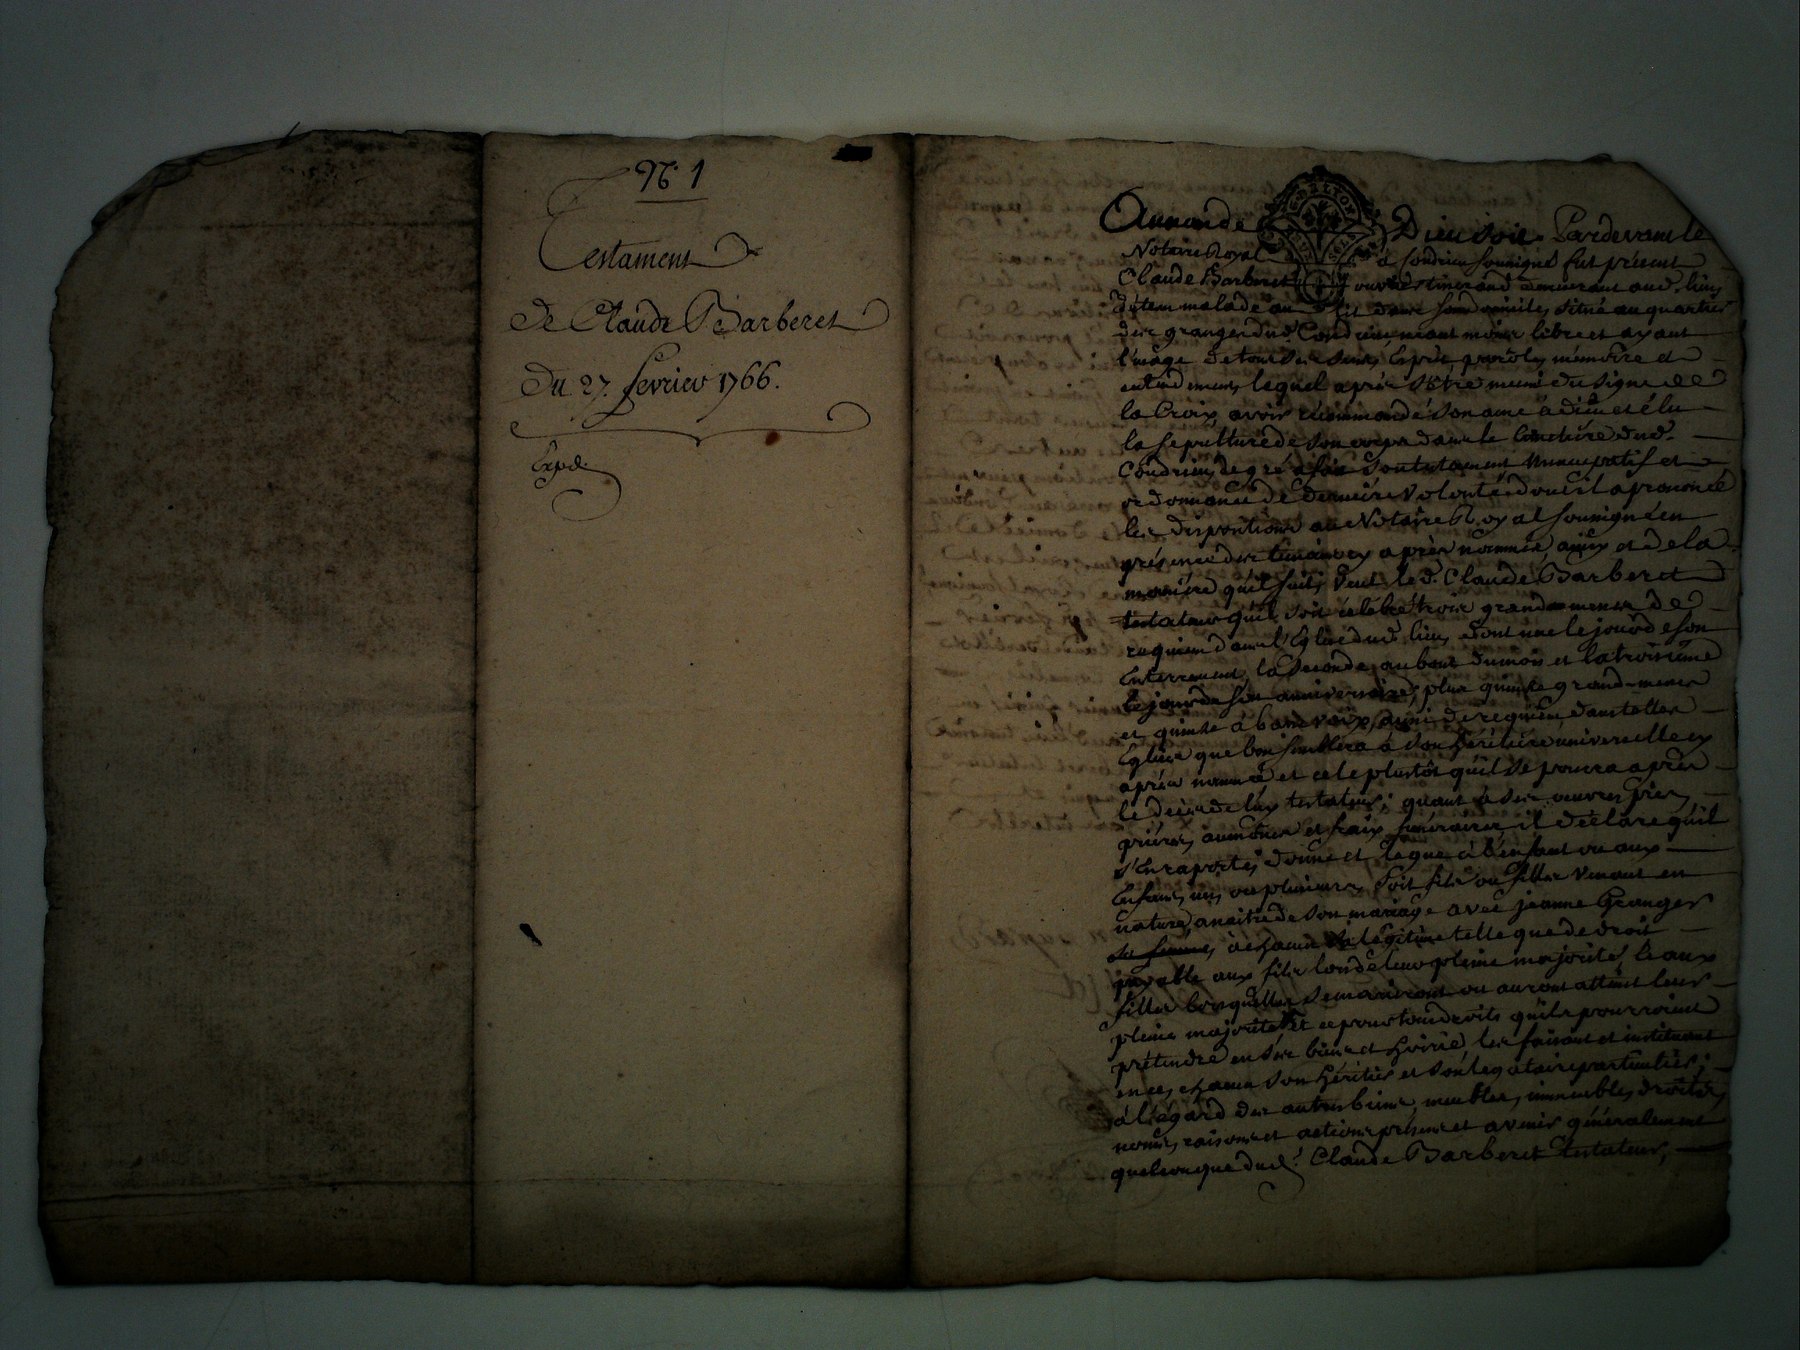 N.º 1
Testament
de Claude Barberet
Du 27. fevrier 1766.
Expd.
Au nom de Dieu soit. Pardevant le
Notaire Royal à Condrieu soussigné fut present
Claude Barberet demeurant aud. lieu
détenu malade au lit dans son domicile, situé au quartier
des granges dud. Condrieu, neant moins libre et ayant
l'usage de tous ses sens, Esprit, parole, mémoire et
entendement, lequel après s'être muni du signe de
la Croix, avoir recommandé son ame à dieu et élu
la sepulture de son corps dans le Cimetière dud.
Condrieu, de gré a fait son testament Nuncupatif et
ordonnance de derniére volonté dont il a prononcé
les dispositions au Notaire Royal soussigné en
présence des temoins cy après nommés, ainsy et de la
maniére qu'il suit, veut led. Claude Barberet
testateur qu'il soit célébré trois grandes messes de
requiem dans l'Eglise dud. lieu, dont une le jour de son
Enterrement, la seconde au bout du mois et la troisiéme
le jour de son anniversaire, plus quinze grand-messes
et quinze à basse voix, aussi de requiem dans telles
Eglises que bon semblera à son héritiére universelle cy
après nommée et ce le plustôt qu'il se pourra après
le decès de luy testateur; quant à ses œuvres pies,
priéres, aumônes et fraix funéraires, il déclare qu'il
s'en raporte; donne et legue à l'enfant ou aux
Enfants, un, ou plusieurs, soit fils ou filles venant en
nature, a naitre de son mariage avec jeanne Granger
sa femme, à chacun sa légitime telle que de droit
payable aux fils lors de leur pleine majorité, et aux
filles lorsquelles se marieront ou auront atteint leur
pleine majorité et ce pour tous droits qu'ils pourroient
prétendre en ses biens et hoirie, les faisant et instituant
en ce, chacun son héritier et son legataire particulier;
à l'égard des autres biens, meubles, immeubles, droits,
noms, raisons et actions presents et avenir généralement
quelconque dud. Claude Barberet testateur,